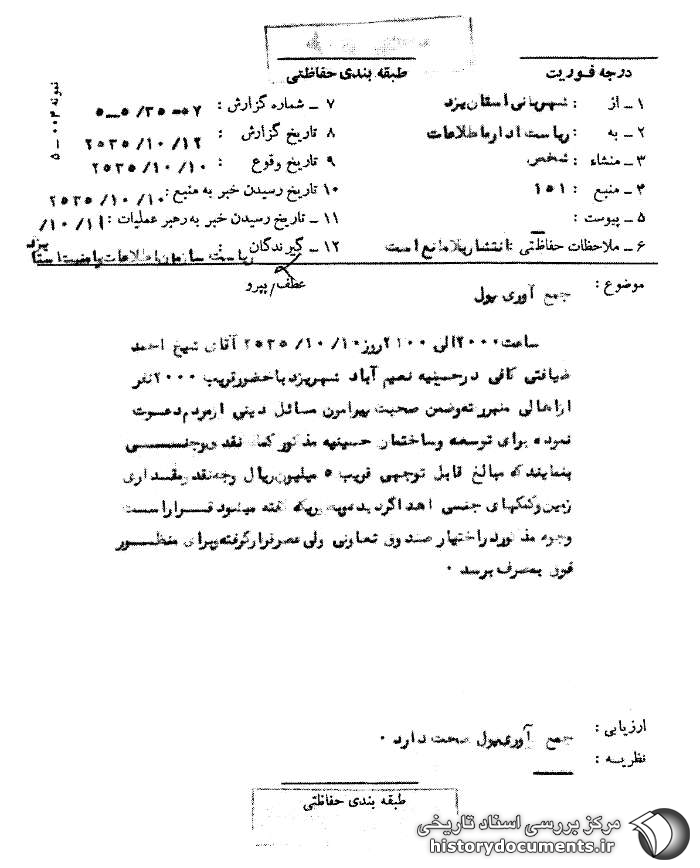 درجه فوریت
طبقه بندی حفاظتی
نمونه ۰۰۴ — ۵
۱ ـ از : شهربانی استان یزد
۲ ـ به : ریاست اداره اطلاعات
۳ ـ منشاء : شخص
۴ ـ منبع : ۱۵۱
۵ ـ پیوست : ــ
۶ ـ ملاحظات حفاظتی : انتشار بلامانع است
۷ ـ شماره گزارش :
۸ تاریخ گزارش : ۲۵۳۵/۱۰/۱۲
۹ تاریخ وقوع : ۲۵۳۵/۱۰/۱۰
۱۰ تاریخ رسیدن خبر به منبع : ۲۵۳۵/۱۰/۱۰
۱۱ ـ تاریخ رسیدن خبر به رهبر عملیات : ۱۰/۱۱/
۱۲ ـ گیرندگان : ریاست سازمان اطلاعات و امنیت استان یزد
عطف/پیرو
موضوع : جمع آوری پول
ساعت ۲۰۰۰ الی ۲۱۰۰ روز ۲۵۳۵/۱۰/۱۰ آقای شیخ احمد
ضیافتی کافی در حسینیه نعیم آباد شهر یزد با حضور قریب ۲۰۰۰ نفر
از اهالی منبر رفته و ضمن صحبت پیرامون مسائل دینی از مردم دعوت
نموده برای توسعه و ساختمان حسینیه مذکور کمک نقدی و جنسی
بنمایند که مبالغ قابل توجهی قریب ۵ میلیون ریال وجه نقد و مقداری
زمین و کمکهای جنسی اهدا گردید بطوریکه گفته میشود قرار است
وجوه مذکور در اختیار صندوق تعاونی ولی عصر قرار گرفته و برای منظور
فوق بمصرف برسد .
ارزیابی : جمع آوری پول صحت دارد .
نظریه : ــ
طبقه بندی حفاظتی
مرکز بررسی اسناد تاریخی
historydocuments.ir